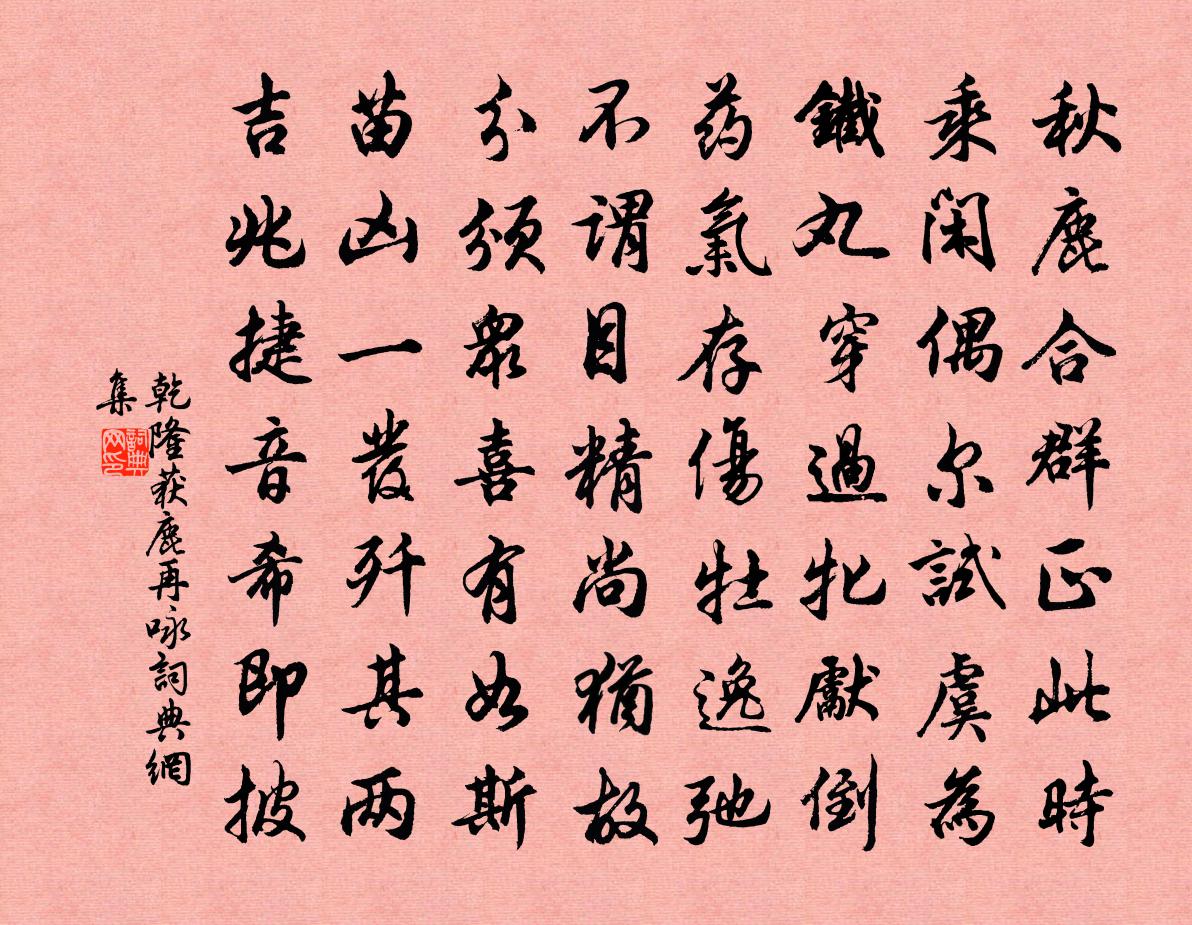 秋鹿合群正此時
乘閑偶尔試虞為
鐵丸穿過牝獻倒
药氣存傷牡逸弛
不謂目精尚猶故
分頒衆喜有如斯
苗凶一發歼其两
吉兆捷音希即披
乾隆获鹿再咏詞典網
集
詞典
网印